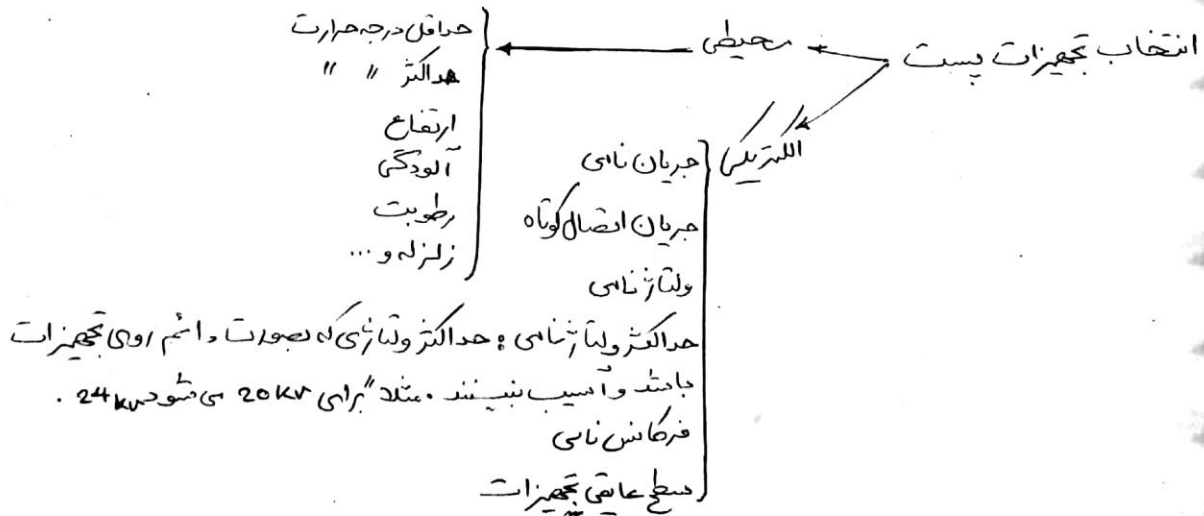 انتخاب تجهیزات پست
محیطی
حداقل درجه حرارت
حداکثر " "
ارتفاع
آلودگی
رطوبت
زلزله و ...
الکتریکی
جریان نامی
جریان اتصال کوتاه
ولتاژ نامی
حداکثر ولتاژ نامی : حداکثر ولتاژی که بصورت دائم روی تجهیزات
باشد و آسیب نبینند . مثلا" برای 20 kv می شود 24 kv .
فرکانس نامی
سطح عایقی تجهیزات